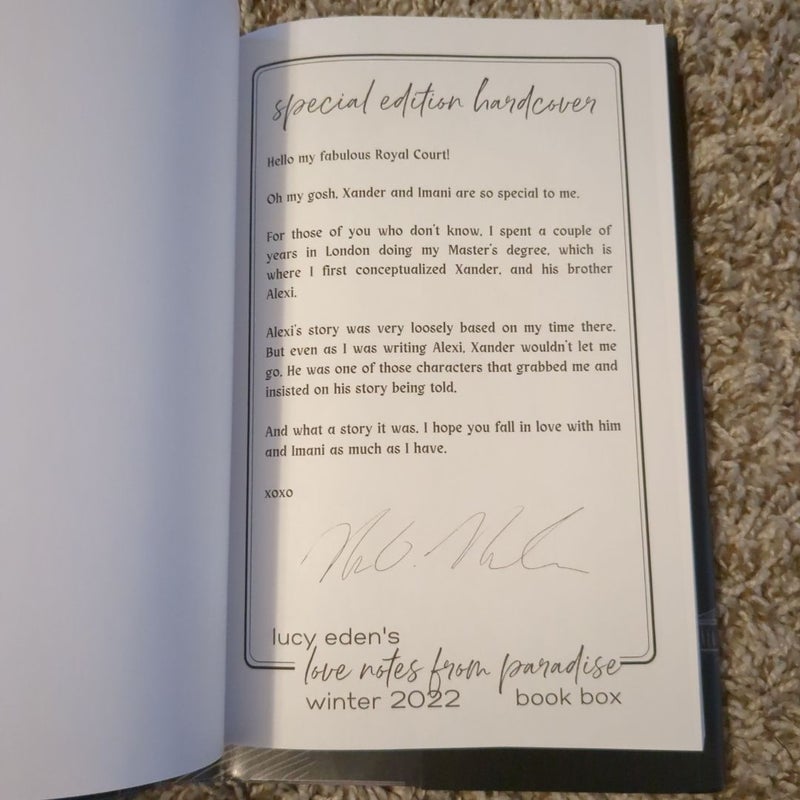 special edition hardcover
Hello my fabulous Royal Court!
Oh my gosh, Xander and Imani are so special to me.
For those of you who don't know, I spent a couple of
years in London doing my Master's degree, which is
where I first conceptualized Xander, and his brother
Alexi.
Alexi's story was very loosely based on my time there.
But even as I was writing Alexi, Xander wouldn't let me
go. He was one of those characters that grabbed me and
insisted on his story being told.
And what a story it was. I hope you fall in love with him
and Imani as much as I have.
xoxo
lucy eden's
love notes from paradise
winter 2022 book box